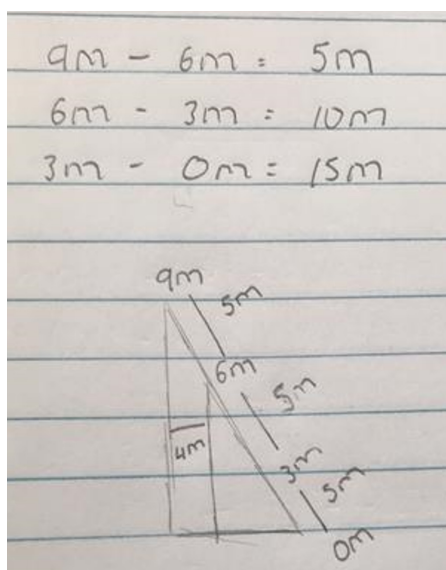 9m - 6m = 5m
6m - 3m = 10m
3m - 0m = 15m
9m
5m
6m
5m
4m
3m
5m
0m